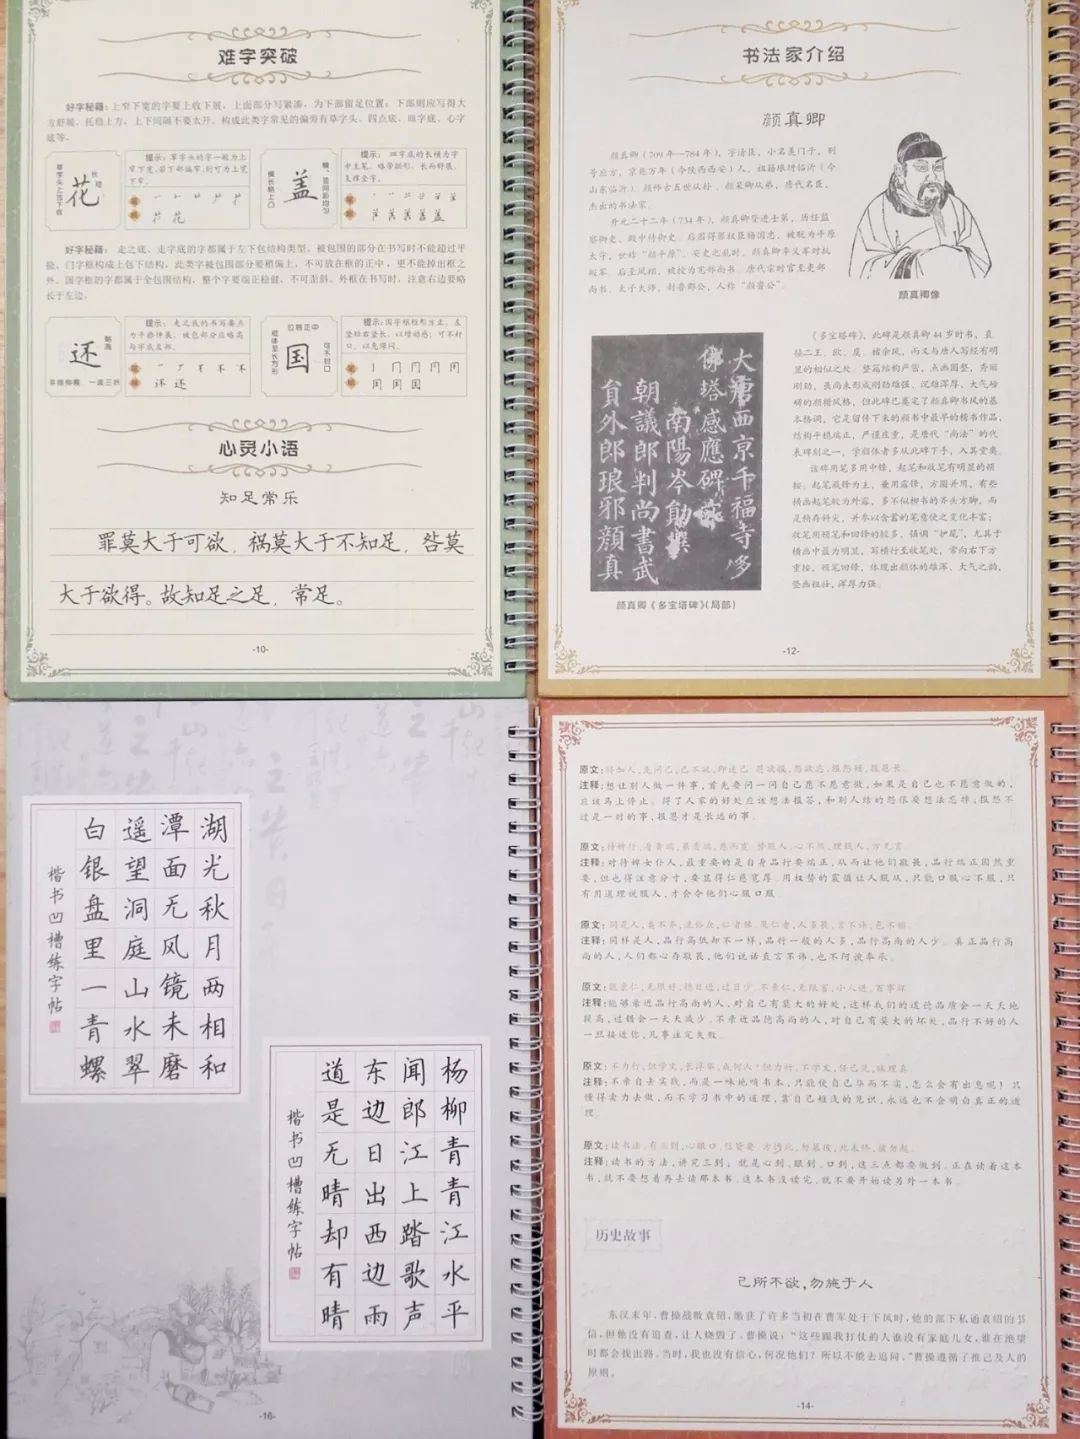 难字突破
好字秘籍：上窄下宽的字要上收下展，上面部分写紧凑，为下部留足位置；下部则应写得大
方舒展，托稳上方，上下间隔不要太开。构成此类字常见的偏旁有草字头、四点底、皿字底、心字
底等。
草字头上部下收
花
提示：草字头的字一般为上
盖
提示：皿字底的长横为字
支撑全字。
好字秘籍：走之底、走字底的字都属于左下包结构类型，被包围的部分在书写时不能超过平
捺。门字框构成上包下结构，此类字被包围部分要稍偏上，不可放在框的正中，更不能掉出框之
外。国字框的字都属于全包围结构，整个字要端正稳健，不可歪斜。外框在书写时，注意右边要略
长于左边。
还
略高
平捺伸展，一波三折
提示：走之底的书写要点
为平捺伸展，被包部分应略高
与字底左部。
位居正中
框体呈长方形
国
可不封口
提示：国字框框形方正，左
竖短右竖长，以增动感；可不封
口，以免滞闷。
心灵小语
知足常乐
罪莫大于可欲，祸莫大于不知足，咎莫
大于欲得。故知足之足，常足。
-10-
书法家介绍
颜真卿
颜真卿（709年—784年），字清臣，小名羡门子，别
号应方，京兆万年（今陕西西安）人，祖籍琅玡临沂（今
山东临沂）。颜师古五世从孙、颜杲卿从弟，唐代名臣，
杰出的书法家。
开元二十二年（734年），颜真卿登进士第，历任监
察御史、殿中侍御史。后因得罪权臣杨国忠，被贬为平原
太守，世称“颜平原”。安史之乱时，颜真卿率义军对抗
叛军。后至凤翔，被授为宪部尚书。唐代宗时官至吏部
尚书、太子太师，封鲁郡公，人称“颜鲁公”。
颜真卿像
大唐西京千福寺多
佛塔感應碑
南陽岑勛撰
朝議郎判尚書武
員外郎琅邪顏真
颜真卿《多宝塔碑》（局部）
《多宝塔碑》，此碑是颜真卿44岁时书，直
接二王、欧、虞、褚余风，而又与唐人写经有明
显的相似之处。整篇结构严密，点画圆整，秀丽
刚劲，虽尚未形成刚劲雄强、沉雄浑厚、大气磅
礴的颜楷风格，但此碑已奠定了颜真卿书风的基
本格调，它是留传下来的颜书中最早的楷书作品，
结构平稳端正，严谨庄重，是唐代“尚法”的代
表碑刻之一，学颜体者多从此碑下手，入其堂奥。
该碑用笔多用中锋，起笔和收笔有明显的顿
按。起笔藏锋为主，兼用露锋，方圆并用，有些
横画起笔较为外露，多不似柳书的齐头方脚，而
是稍存斜尖，并参以含蓄的笔意使之变化丰富；
收笔用顿笔和回锋的较多，强调“护尾”，尤其于
横画中最为明显，写横行至收笔处，常向右下方
重按，顿笔回锋，体现出颜体的雄浑、大气之韵，
竖画粗壮，浑厚力强。
-12-
湖光秋月两相和
潭面无风镜未磨
遥望洞庭山水翠
白银盘里一青螺
楷书凹槽练字帖
杨柳青青江水平
闻郎江上踏歌声
东边日出西边雨
道是无晴却有晴
楷书凹槽练字帖
-16-
原文：将加人，先问己，己不欲，即速已。恩欲报，怨欲忘，报怨短，报恩长。
注释：想让别人做一件事，首先要问一问自己愿不愿意做，如果是自己也不愿意做的，
应该马上停止。得了人家的好处应该想法报答，和别人结的怨仇要想法忘掉；报怨不
过是一时的事，报恩才是长远的事。
原文：待婢仆，身贵端，虽贵端，慈而宽。势服人，心不然，理服人，方无言。
注释：对待婢女仆人，最重要的是自身品行要端正，从而让他们敬畏，品行端正固然重
要，但也得注意分寸，要显得仁慈宽厚。用权势的震慑让人服从，只能口服心不服，只
有用道理说服人，才会令他们心服口服。
原文：同是人，类不齐，流俗众，仁者稀。果仁者，人多畏，言不讳，色不媚。
注释：同样是人，品行高低却不一样，品行一般的人多，品行高尚的人少。真正品行高
尚的人，人们都心存敬畏，他们说话直言不讳，也不阿谀奉承。
原文：能亲仁，无限好，德日进，过日少。不亲仁，无限害，小人进，百事坏。
注释：能够亲近品行高尚的人，对自己有莫大的好处，这样我们的道德品质会一天天地
提高，过错会一天天减少。不亲近品德高尚的人，对自己有莫大的坏处，品行不好的人
一旦接近你，凡事注定失败。
原文：不力行，但学文，长浮华，成何人！但力行，不学文，任己见，昧理真。
注释：不亲自去实践，而是一味地啃书本，只能使自己华而不实，怎么会有出息呢！只
懂得卖力去做，而不学习书中的道理，靠自己粗浅的见识，永远也不会明白真正的道
理。
原文：读书法，有三到，心眼口，信皆要。方读此，勿慕彼，此未终，彼勿起。
注释：读书的方法，讲究三到；就是心到、眼到、口到，这三点都要做到。正在读着这本
书，就不要想着再去读那本书。这本书没读完，就不要开始读另外一本书。
历史故事
己所不欲，勿施于人
东汉末年，曹操战败袁绍，缴获了许多当初在曹军处于下风时，他的部下私通袁绍的书
信，但他没有追查，让人烧毁了。曹操说：“这些跟我打仗的人谁没有家庭儿女，谁在绝望
时都会找出路。当时，我也没有信心，何况他们？所以不能去追问。”曹操遵循了推己及人的
原则。
-14-